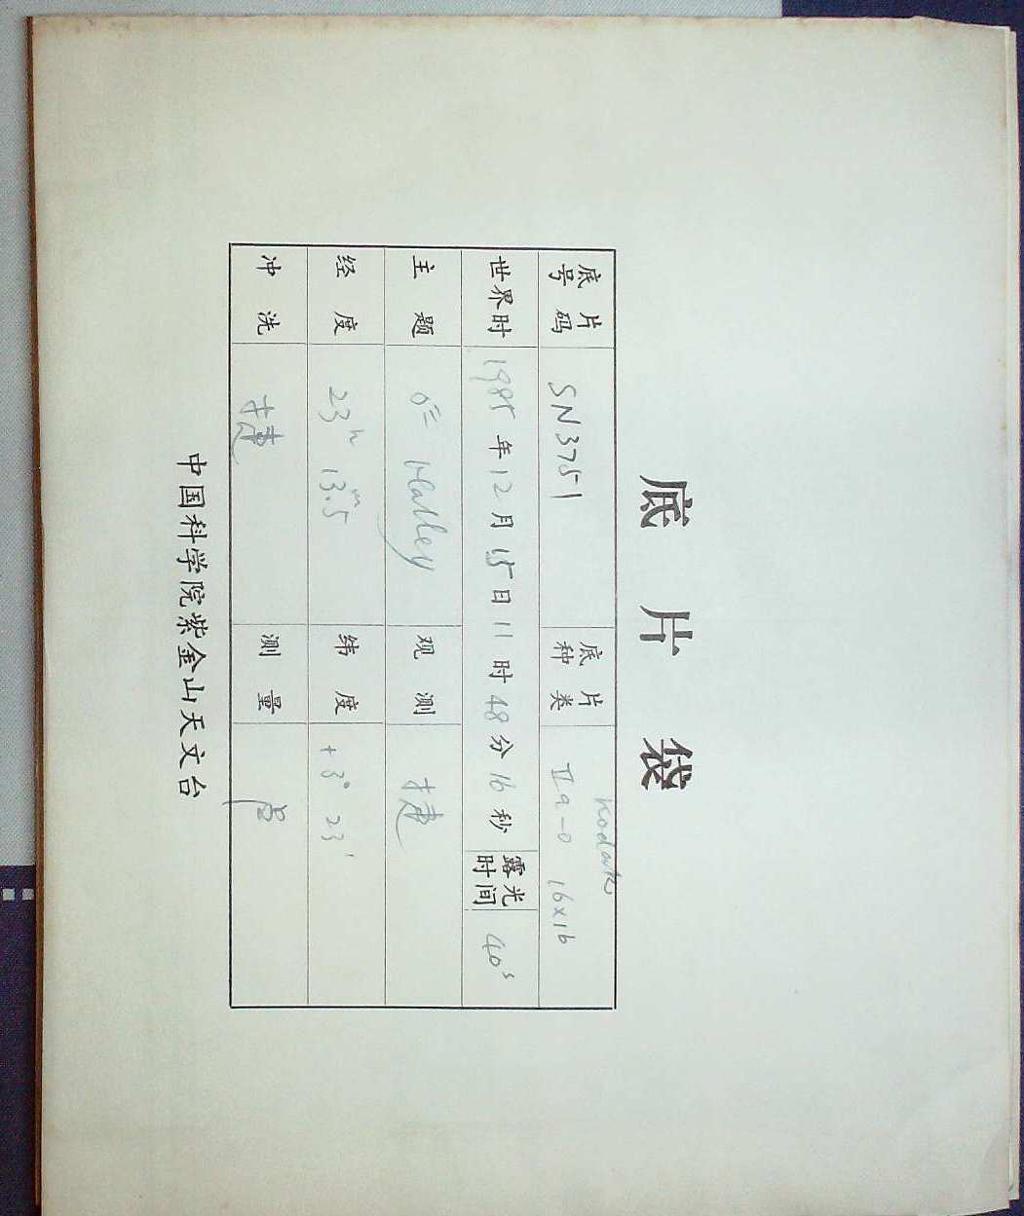 底片袋
底片号码 SN3751 底片种类 Kodak IIa-O 16×16
世界时 1985年12月15日11时48分16秒 露光时间 40s
主题 Halley 观测 捷
经度 23h 13m.5 纬度 +3° 23′
冲洗 捷 测量
中国科学院紫金山天文台